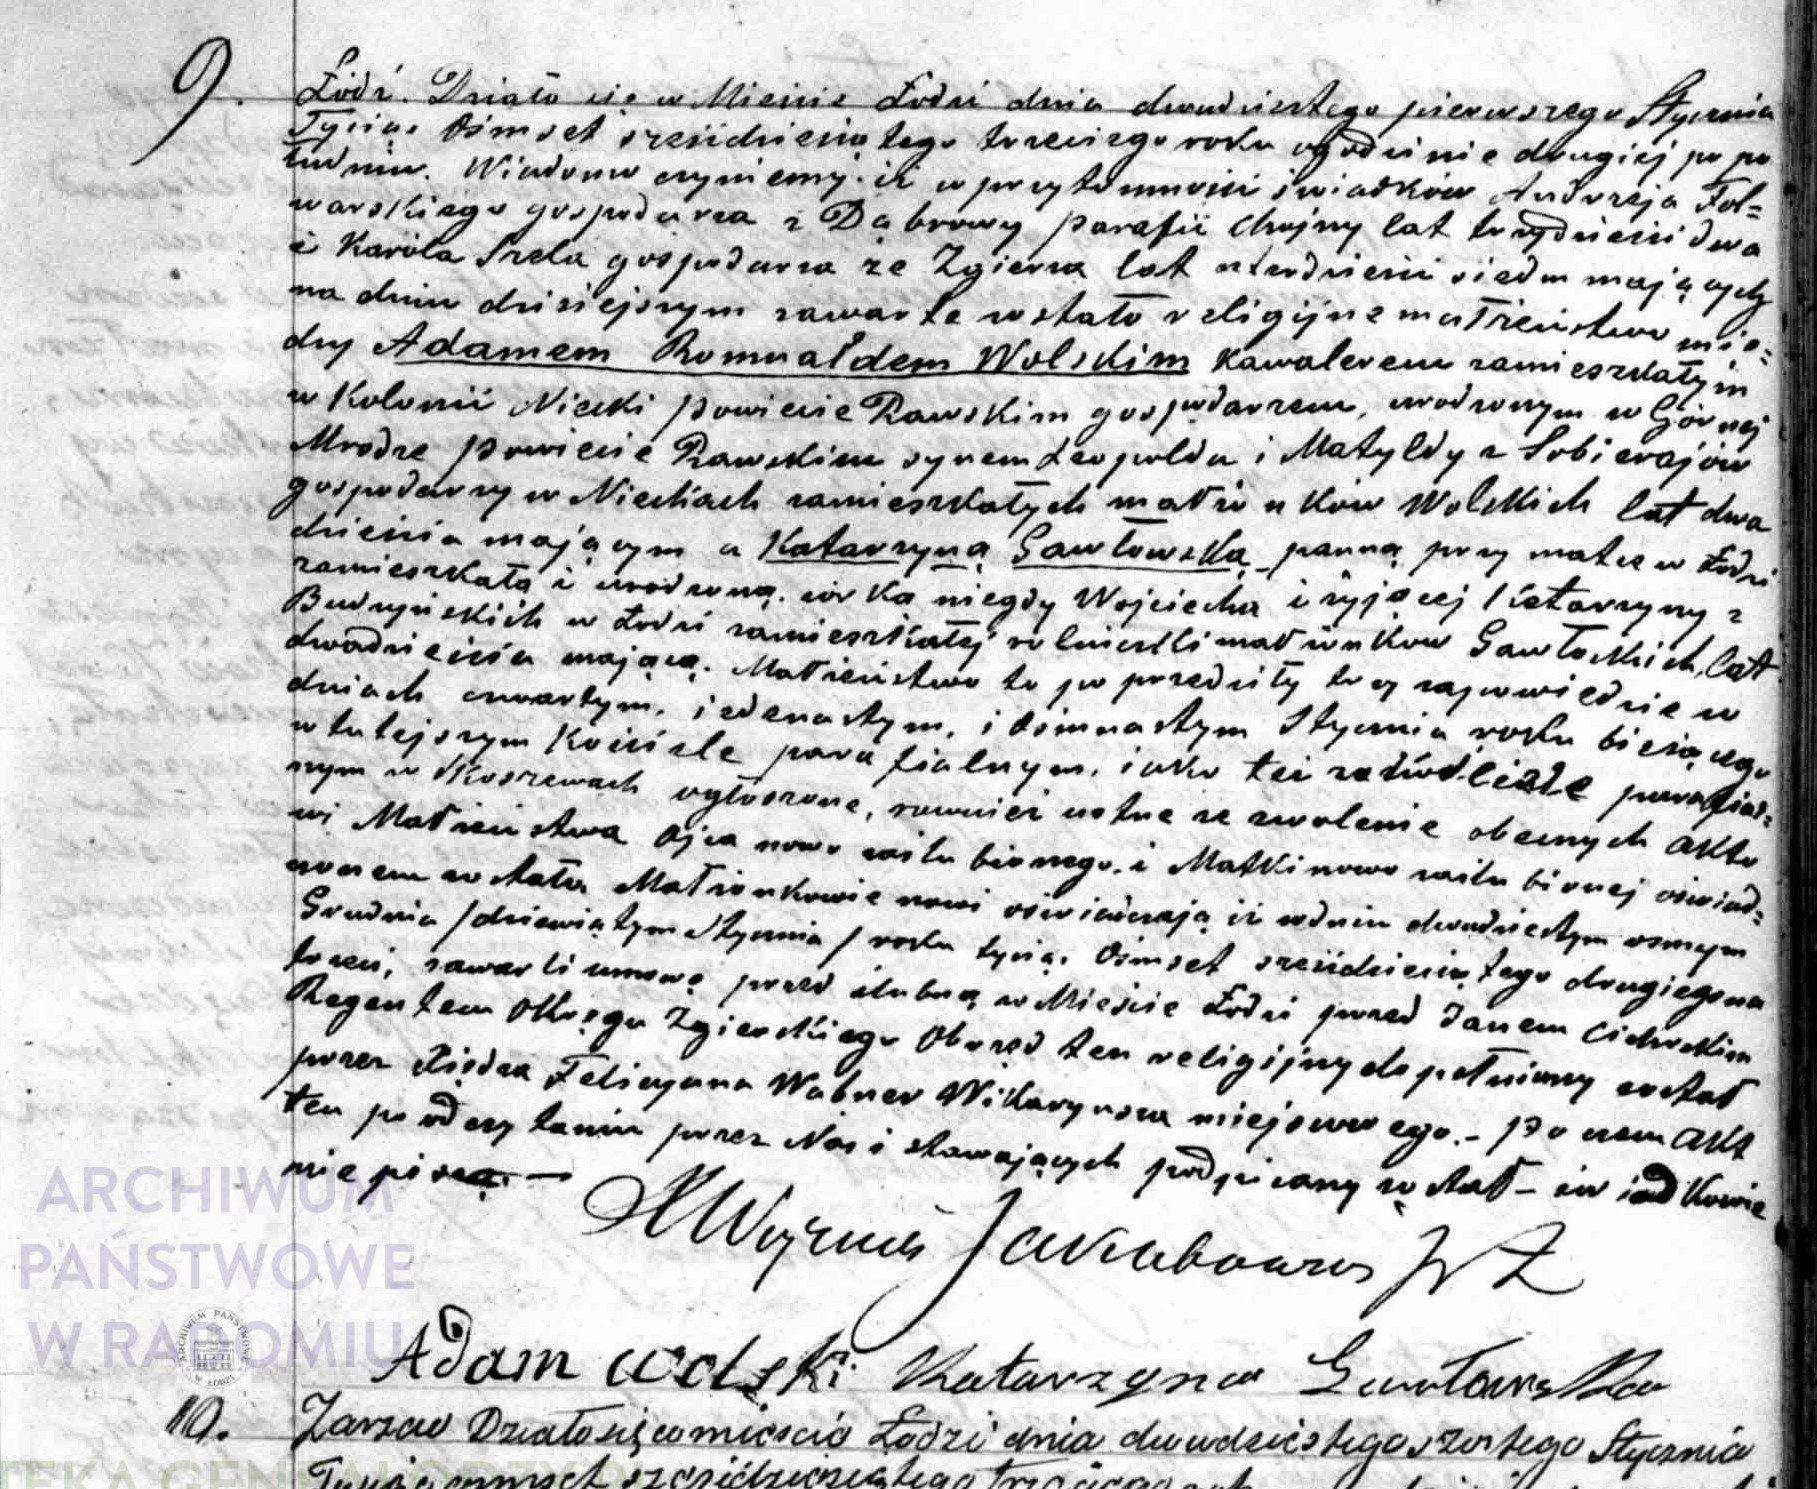 9.
Łódź. Działo się w Mieście Łodzi dnia dwudziestego pierwszego Stycznia
Tysiąc Ośmset sześćdziesiątego trzeciego roku o godzinie drugiej po po
łudniu. Wiadomo czyniemy, iż w przytomności świadków Andrzeja Fol=
warskiego gospodarza z Dąbrowy Parafii Chojny lat trzydzieści dwa
i Karola Szela gospodarza ze Zgierza lat czterdzieści siedm mających
na dniu dzisiejszym zawarte zostało religijne małżeństwo mię=
dzy Adamem Romualdem Wolskim Kawalerem zamieszkałym
w Kolonii Niesułki powiecie Rawskim gospodarzem, urodzonym w Górnej
Mrodze powiecie Rawskim synem Leopolda i Matyldy z Sobierajów
gospodarzy w zamieszkałych małżonków Wolskich lat dwa
dzieścia mającym a Katarzyną Gawłowską panną przy matce w Łodzi
zamieszkałą i urodzoną, córką niegdy Wojciecha i żyjącej Katarzyny z
Budzyńskich w Łodzi zamieszkałej małżonków Gawłoskich, lat
dwadzieścia mającą. Małżeństwo to poprzedziły trzy zapowiedzie w
dniach czwartym, jedenastym, i ośmnastym Stycznia roku bieżącego
w tutejszym Kościele parafialnym, jako też parafial=
nym w Skoszewach ogłoszone, również ustne ze zwolenie obecnych Akto
wi Małżeństwa Ojca nowo zaślubionego, i Matki nowo zaślubionej oświad=
czonem zostało. Małżonkowie nowi oświadczają iż w dniu dwudziestym osmym
Grudnia / dziewiątym Stycznia / roku tysiąc Ośmset sześćdziesiątego drugiego na
trzeci, zawarli umowę przed ślubną w Mieście Łodzi przed Janem Cichockim
Regentem Okręgu Zgierskiego Obrzęd ten religijny dopełniony został
przez Księdza Felicyana Wabner Wikaryusza miejscowego. – Po czem Akt
ten po odczytaniu przez Nas i stawających podpisany został – świadkowie
nie piszą. —
Adam wolski Katarzyna Gawłowska
10.
Zarzew Działo się w mieście Łodzi dnia dwudziestego szóstego Stycznia
Tysiąc ośmset sześćdziesiątego trzeciego
ARCHIWUM
PAŃSTWOWE
W RADOMIU
ARCHIWUM PAŃSTWOWE W ŁODZI